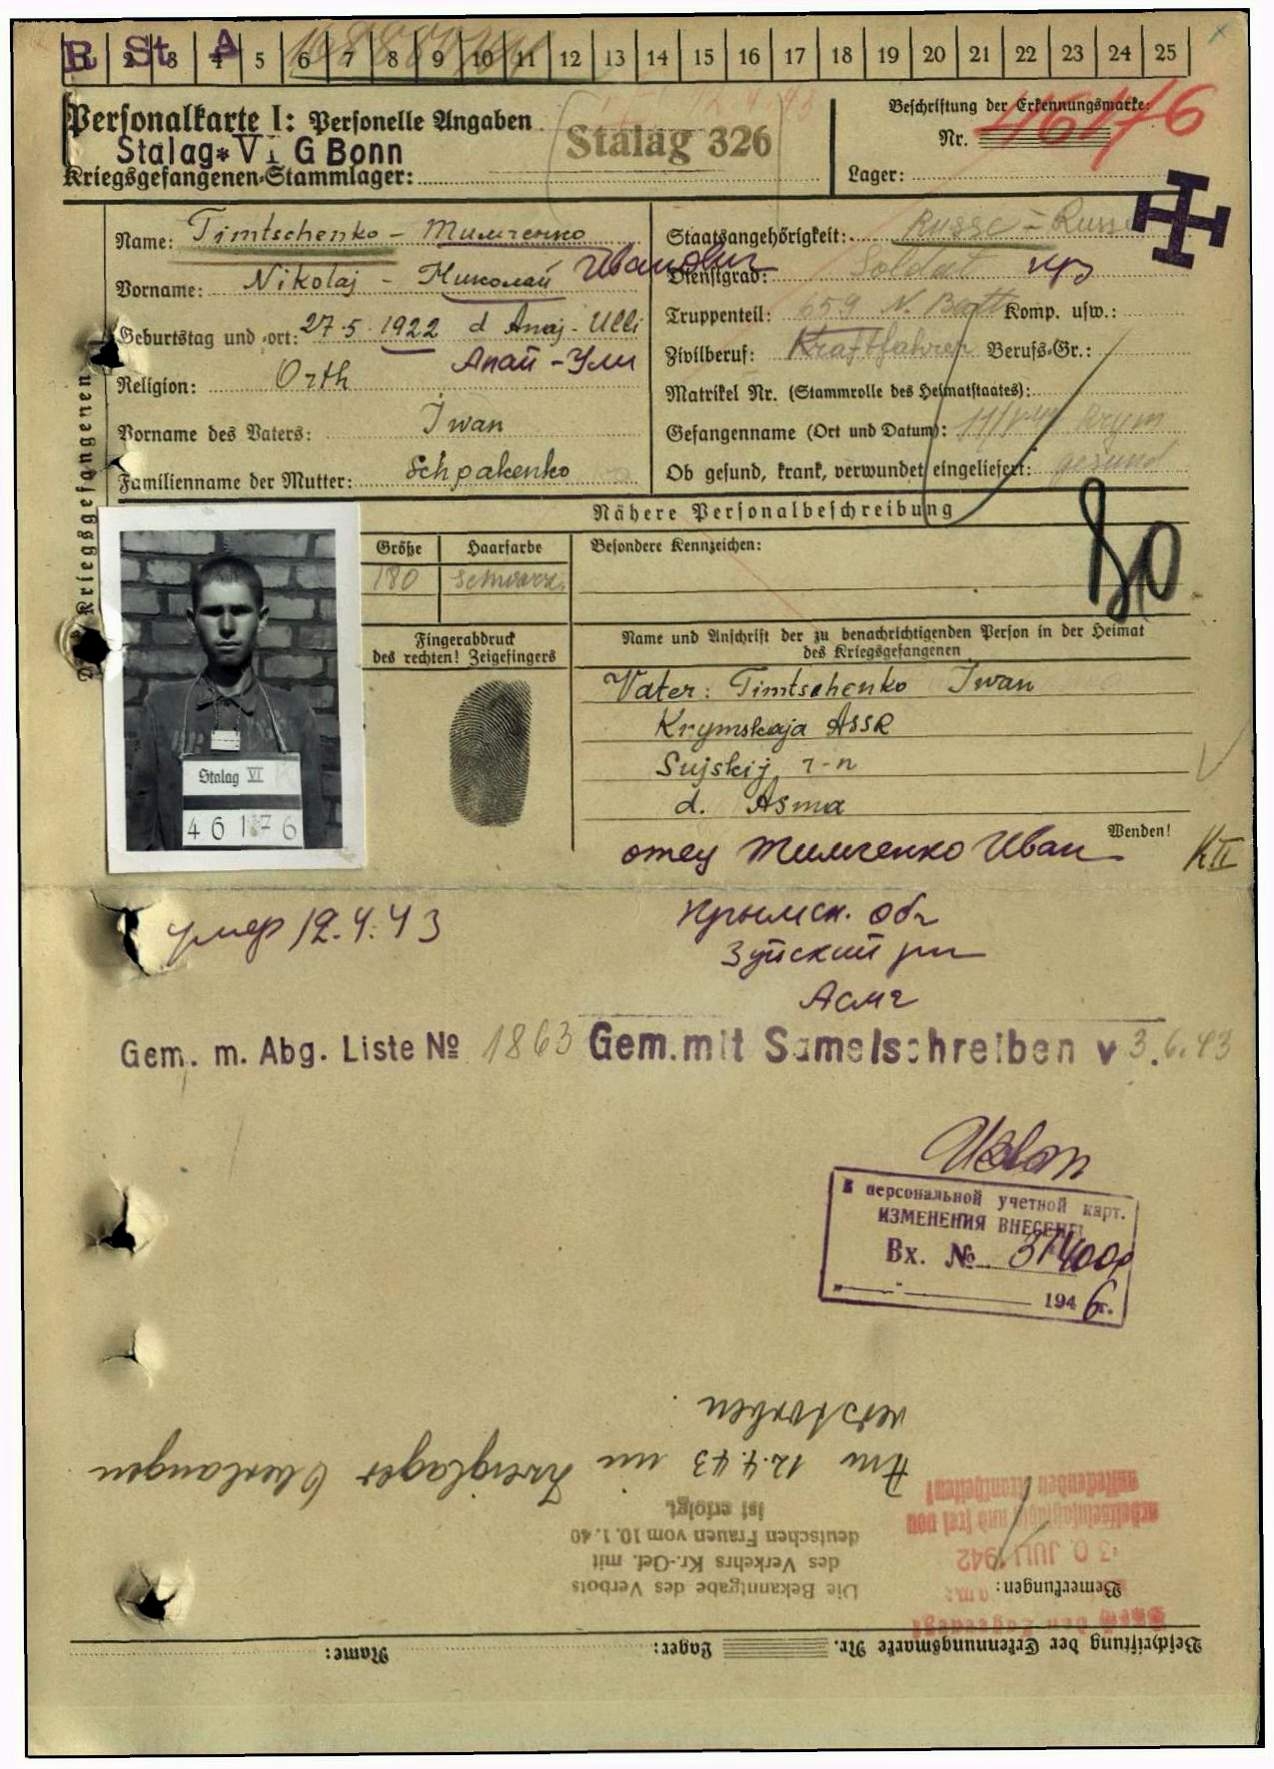 R St A
2 3 4 5 6 7 8 9 10 11 12 13 14 15 16 17 18 19 20 21 22 23 24 25
Personalkarte I: Personelle Angaben
Stalag 326
Beschriftung der Erkennungsmarke:
Nr. 46176
Stalag VI G Bonn
Kriegsgefangenen-Stammlager:
Lager:
Name: Timtschenko - Тимченко
Staatsangehörigkeit: Russe - Russe
Vorname: Nikolaj - Николай Иванович
Dienstgrad: Soldat кр
Geburtstag und -ort: 27.5.1922 d
Апай-Ули
Truppenteil: 659 Komp. usw.:
Zivilberuf: Kraftfahrer Berufs-Gr.:
Religion: Orth
Matrikel Nr. (Stammrolle des Heimatstaates):
Vorname des Vaters: Iwan
Gefangenname (Ort und Datum): Krym
Familienname der Mutter: Schpakenko
Ob gesund, krank, verwundet eingeliefert: gesund
Kriegsgefangenen
Nähere Personalbeschreibung
80
Größe Haarfarbe
180 schwarz
Besondere Kennzeichen:
Fingerabdruck
des rechten! Zeigefingers
Name und Anschrift der zu benachrichtigenden Person in der Heimat
des Kriegsgefangenen
Vater: Timtschenko Iwan
Krymskaja ASSR
Sujskij r-n
d. Asma
Stalag VI
46176
Wenden!
отец Тимченко Иван
К II
умер 12.4.43
Крымск. обл
Зуйский рн
Асма
Gem. m. Abg. Liste № 1863 Gem. mit Samelschreiben v 3.6.43
В персональной учетной карт.
ИЗМЕНЕНИЯ ВНЕСЕНЫ
Вх. №
1946 г.
verstorben.
Am 12.4.43 im Zweiglager Oberlangen
Die Bekanntgabe des Verbots
des Verkehrs Kr.-Gef. mit
deutschen Frauen vom 10.1.40
ist erfolgt.
30. JULI 1942
Bemerkungen:
Beschriftung der Erkennungsmarke Nr. Lager: Name: